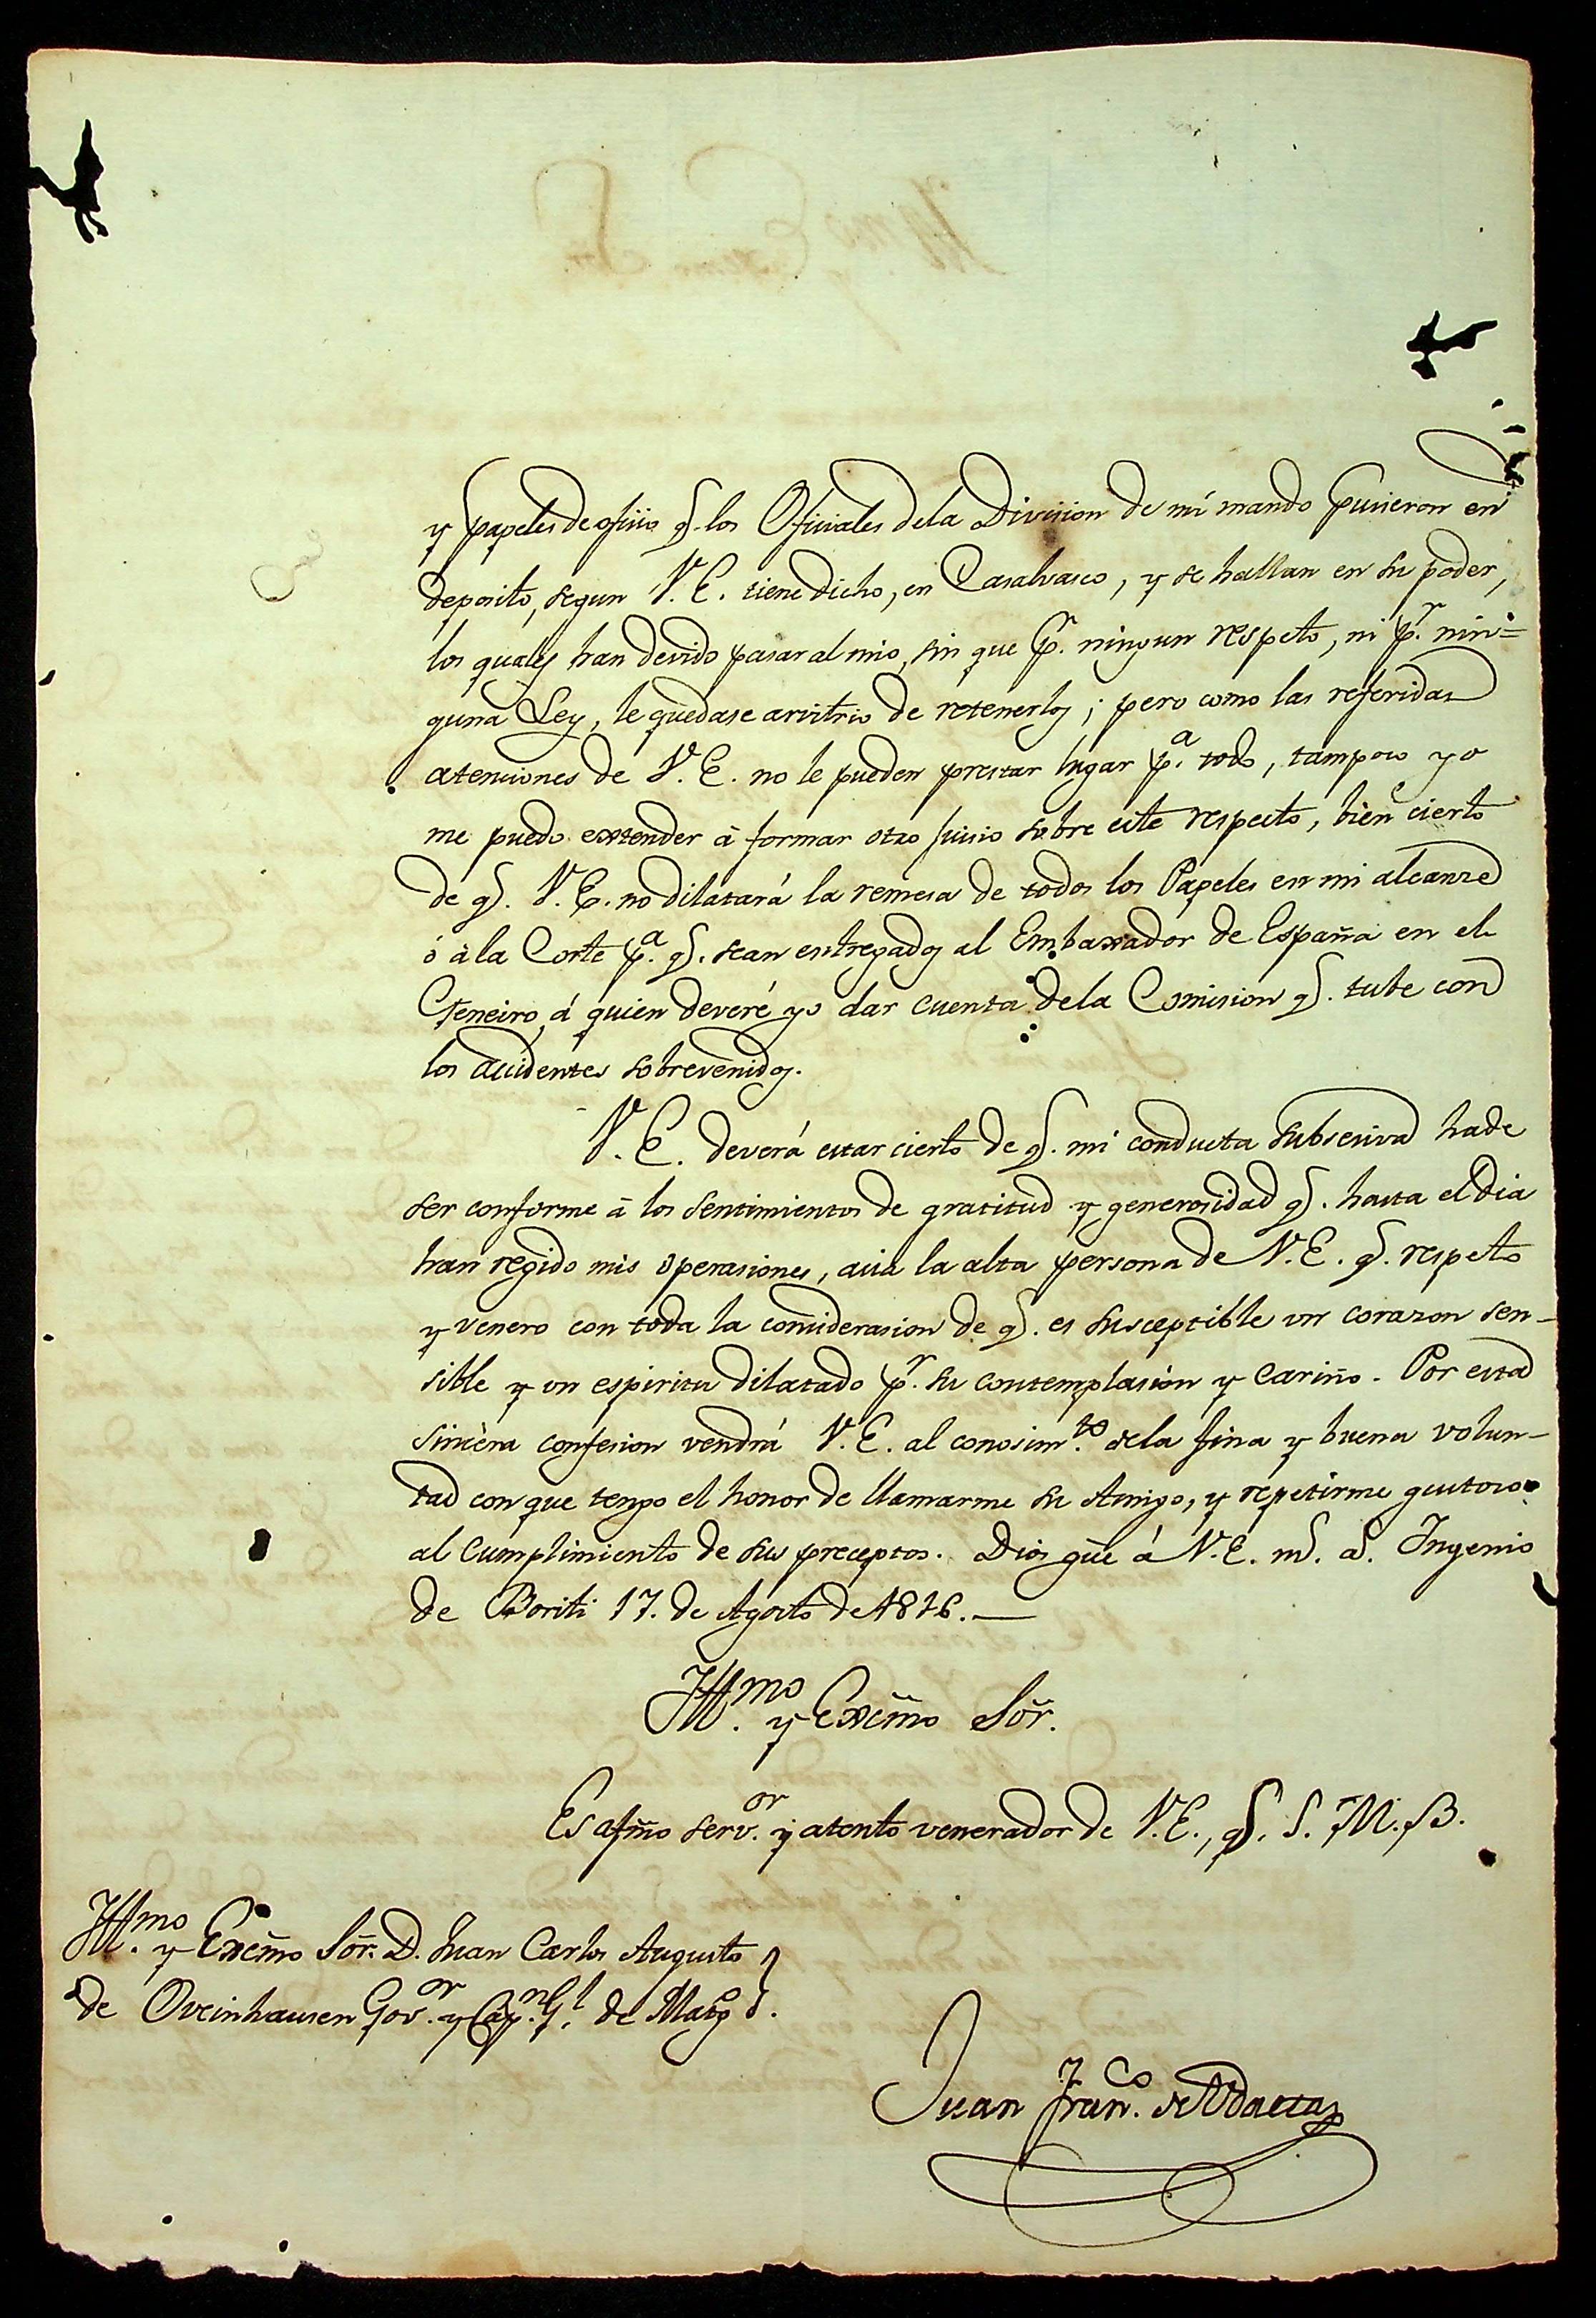 y papeles de oficio q.e los Oficiales dela Division de mi mando pusieron en
deposito, segun V. E. tiene dicho, en Casalvasco, y se hallan en su poder,
los quales han devido pasar al mio, sin que p.r ningun respeto, ni p.r nin=
guna Ley, le quedase arvitrio de retenerlos; pero como las referidas
atenciones de V. E. no le pueden prestar lugar p.a todo, tampoco yo
me puedo extender à formar otro juicio sobre este respecto, bien cierto
de q.e V. E. no dilatará la remesa de todos los Papeles en mi alcanze
ó à la Corte p.a q.e sean entregados al Embaxador de España en el
Geneiro, á quien deveré yo dar cuenta dela Comision q.e tube con
los accidentes sobrevenidos.
V. E. deverá estar cierto de q.e mi conducta subseciva hade
ser conforme à los sentimientos de gratitud y generosidad q.e hasta el Dia
han regido mis operasiones, acia la alta persona de V. E. q.e respeto
y venero con toda la considerasion de q.e es susceptible un corazon sen-
sible y un espiritu dilatado p.r su contemplasion y cariño. Por esta
sincera confesion vendrá V. E. al conosim.to dela fina y buena volun-
tad con que tengo el honor de llamarme su Amigo, y repetirme gustoso
al cumplimiento de sus preceptos. Dios gûe á V. E. m.s a.s Ingenio
de Boriti 17. de Agosto de 1816.—
Ill.mo y Excmõ Sõr.
Es afmõ serv.or y atento venerador de V. E., q.e S. M. B.
Ill.mo y Excmõ Sõr. D. Juan Carlos Augusto
de Oveinhausen Gov.or y Cap.n G.l de
Juan Fran.co de